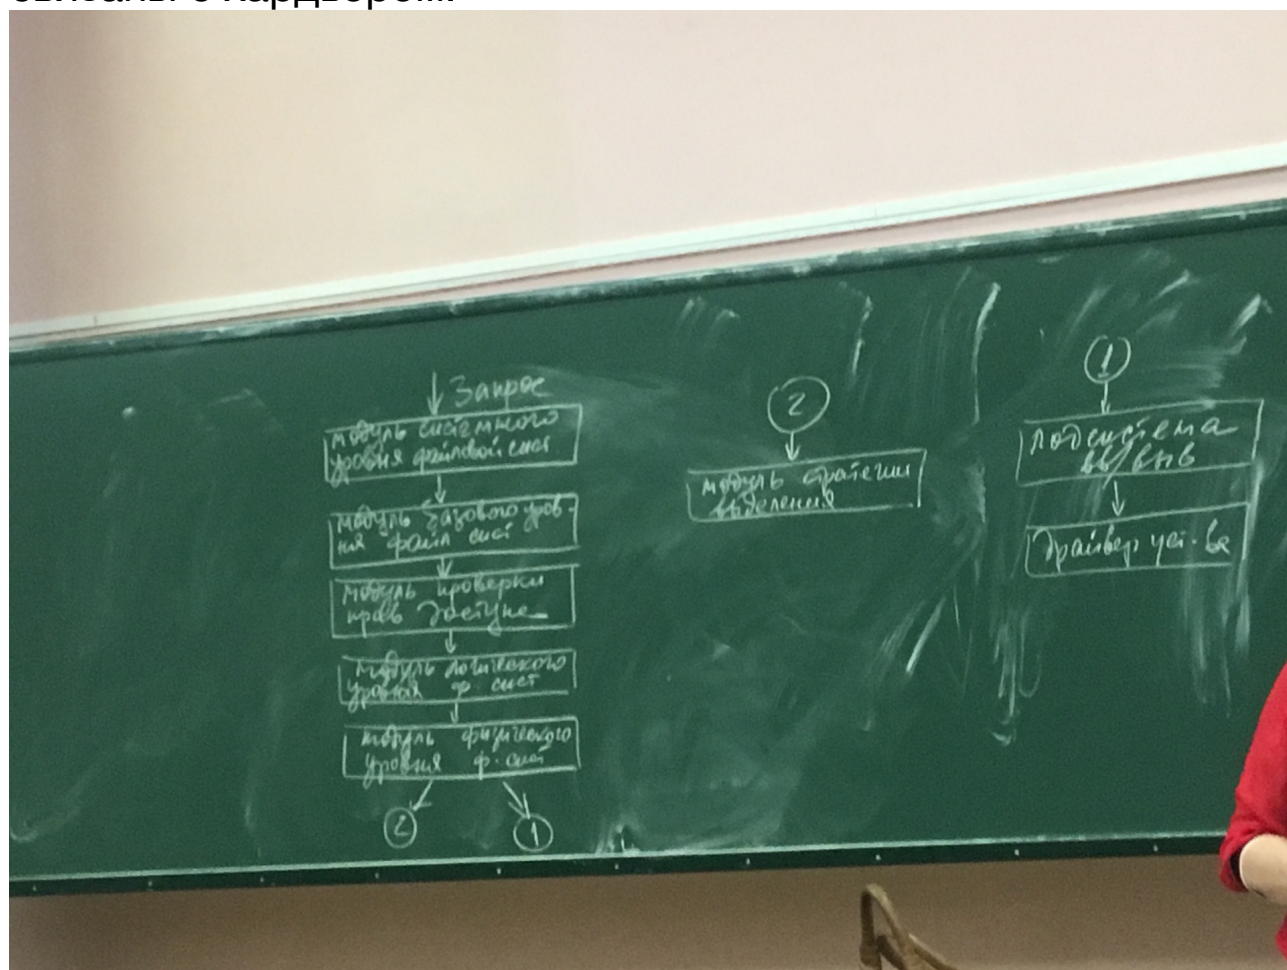 Запрос
модуль системного
уровня файловой сист
модуль базового уров-
ня файл сист
модуль проверки
прав доступа
модуль логического
уровня ф. сист
модуль физического
уровня ф. сист
2
1
2
модуль стратегии
выделения
1
подсистема
вв/выв
драйвер уст-ва